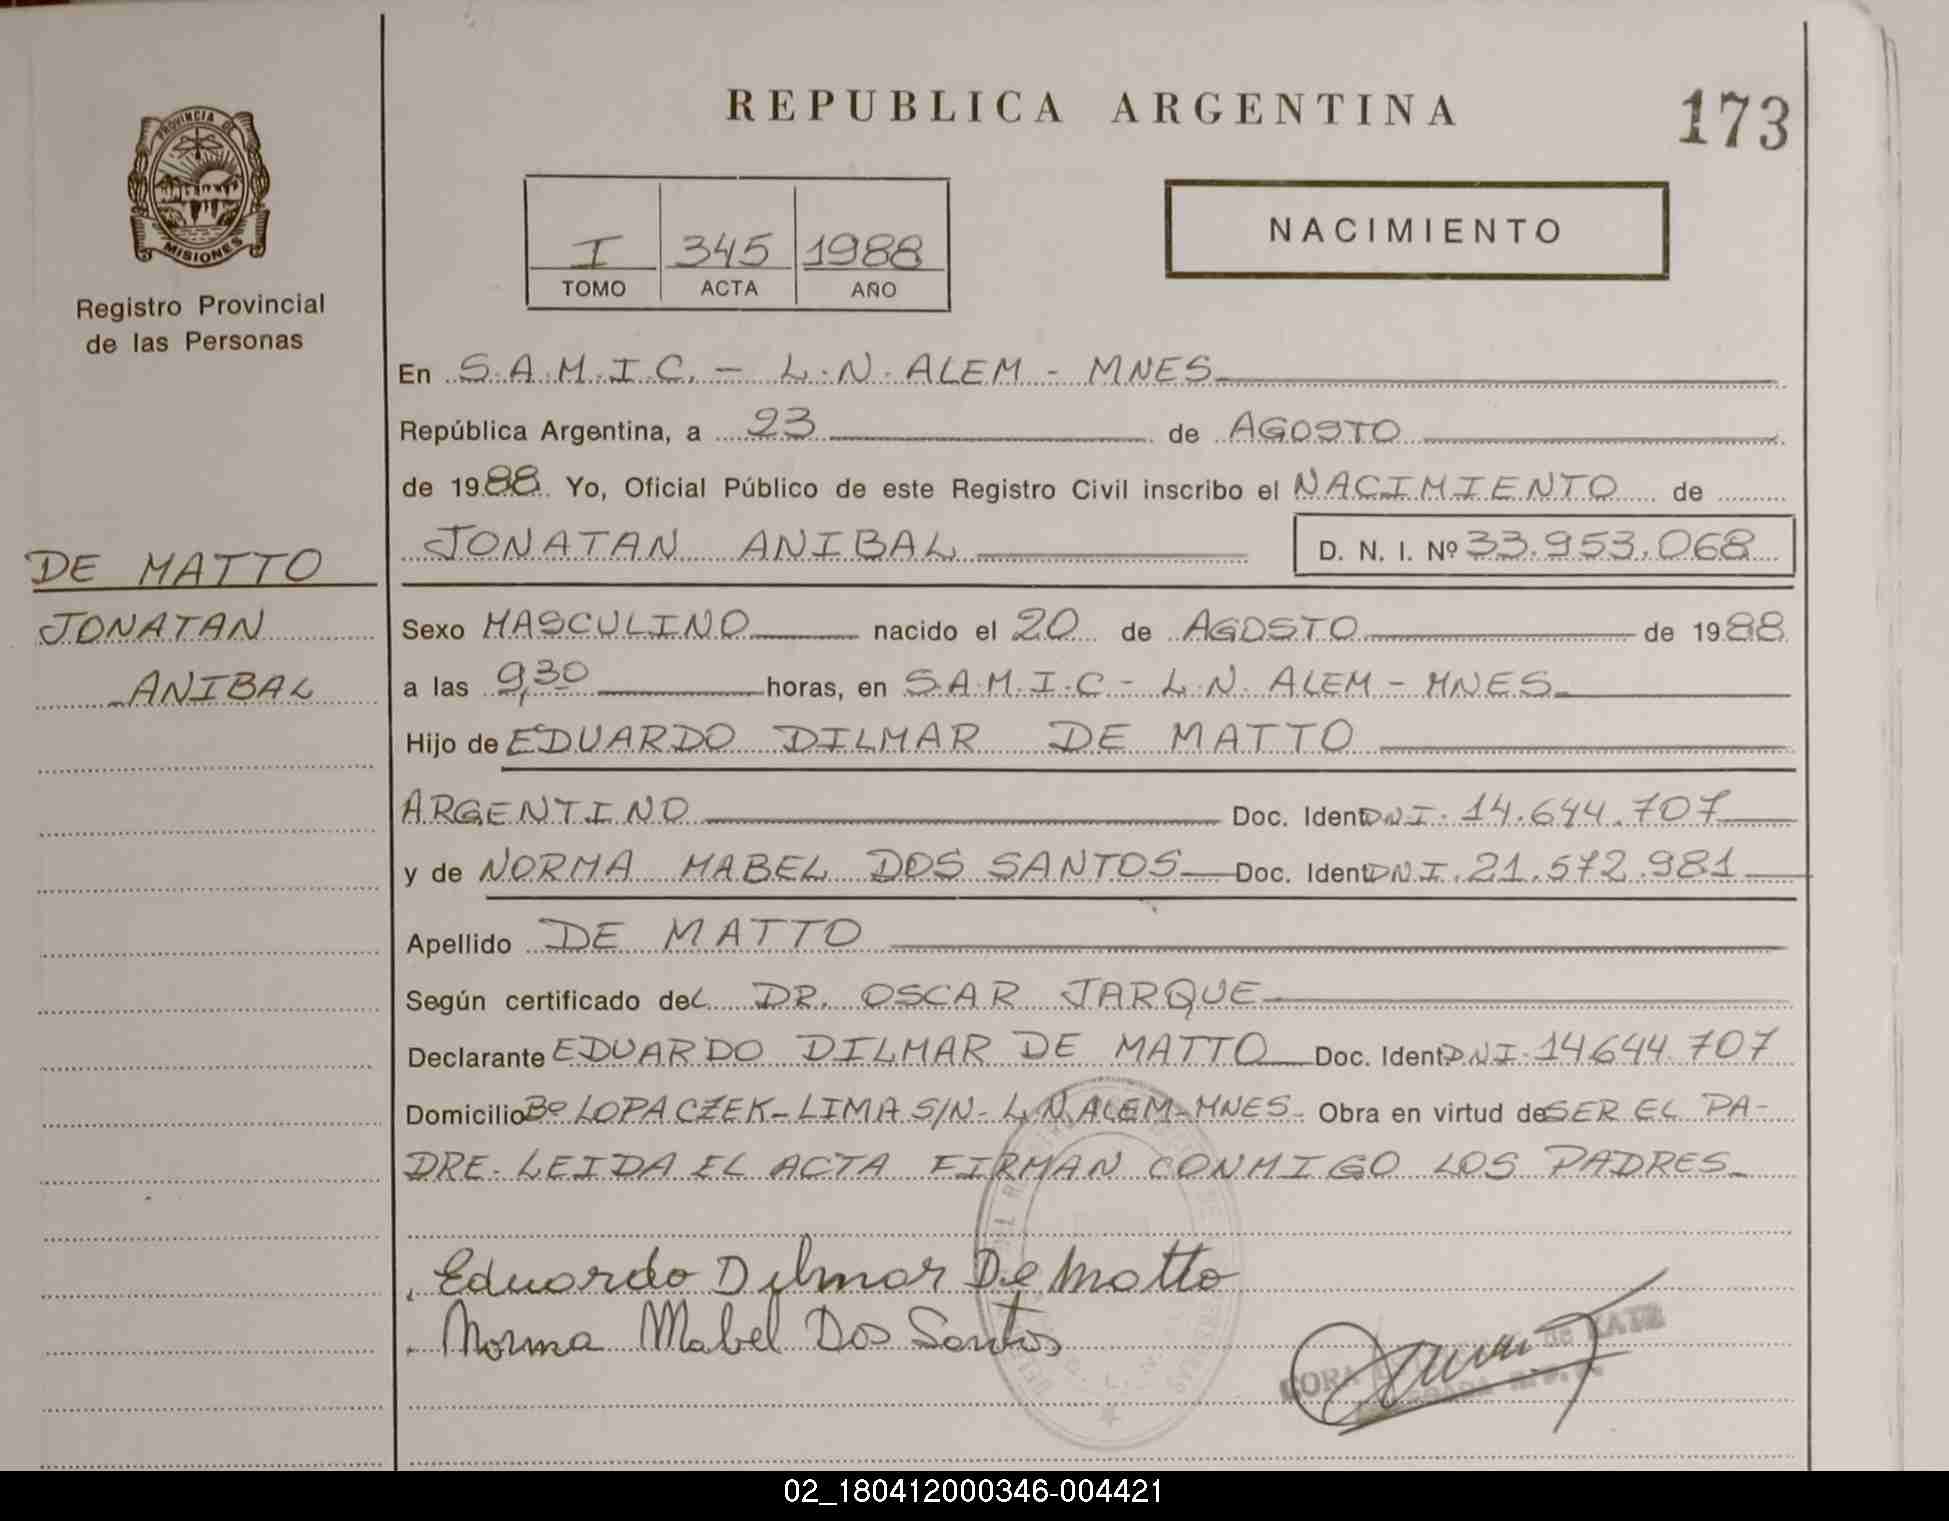 REPUBLICA ARGENTINA
173
PROVINCIA DE
MISIONES
Registro Provincial
de las Personas
I 345 1988
TOMO ACTA AÑO
NACIMIENTO
En S.A.M.I.C. - L.N. ALEM - MNES
República Argentina, a 23 de AGOSTO
de 1988. Yo, Oficial Público de este Registro Civil inscribo el NACIMIENTO de
JONATAN ANIBAL D. N. I. Nº 33.953.068
DE MATTO
JONATAN
ANIBAL
Sexo MASCULINO nacido el 20 de AGOSTO de 1988
a las 9,30 horas, en S.A.M.I.C - L.N. ALEM - MNES
Hijo de EDUARDO DILMAR DE MATTO
ARGENTINO Doc. Ident DNI. 14.644.707
y de NORMA MABEL DOS SANTOS Doc. Ident DNI. 21.572.981
Apellido DE MATTO
Según certificado deL DR. OSCAR JARQUE
Declarante EDUARDO DILMAR DE MATTO Doc. Ident D.N.I. 14644.707
Domicilio Bº LOPACZEK - LIMA S/N - L.N. ALEM - MNES. Obra en virtud de SER EL PA-
DRE. LEIDA EL ACTA FIRMAN CONMIGO LOS PADRES
Eduardo Dilmar De Matto
Norma Mabel Dos Santos
02_180412000346-004421